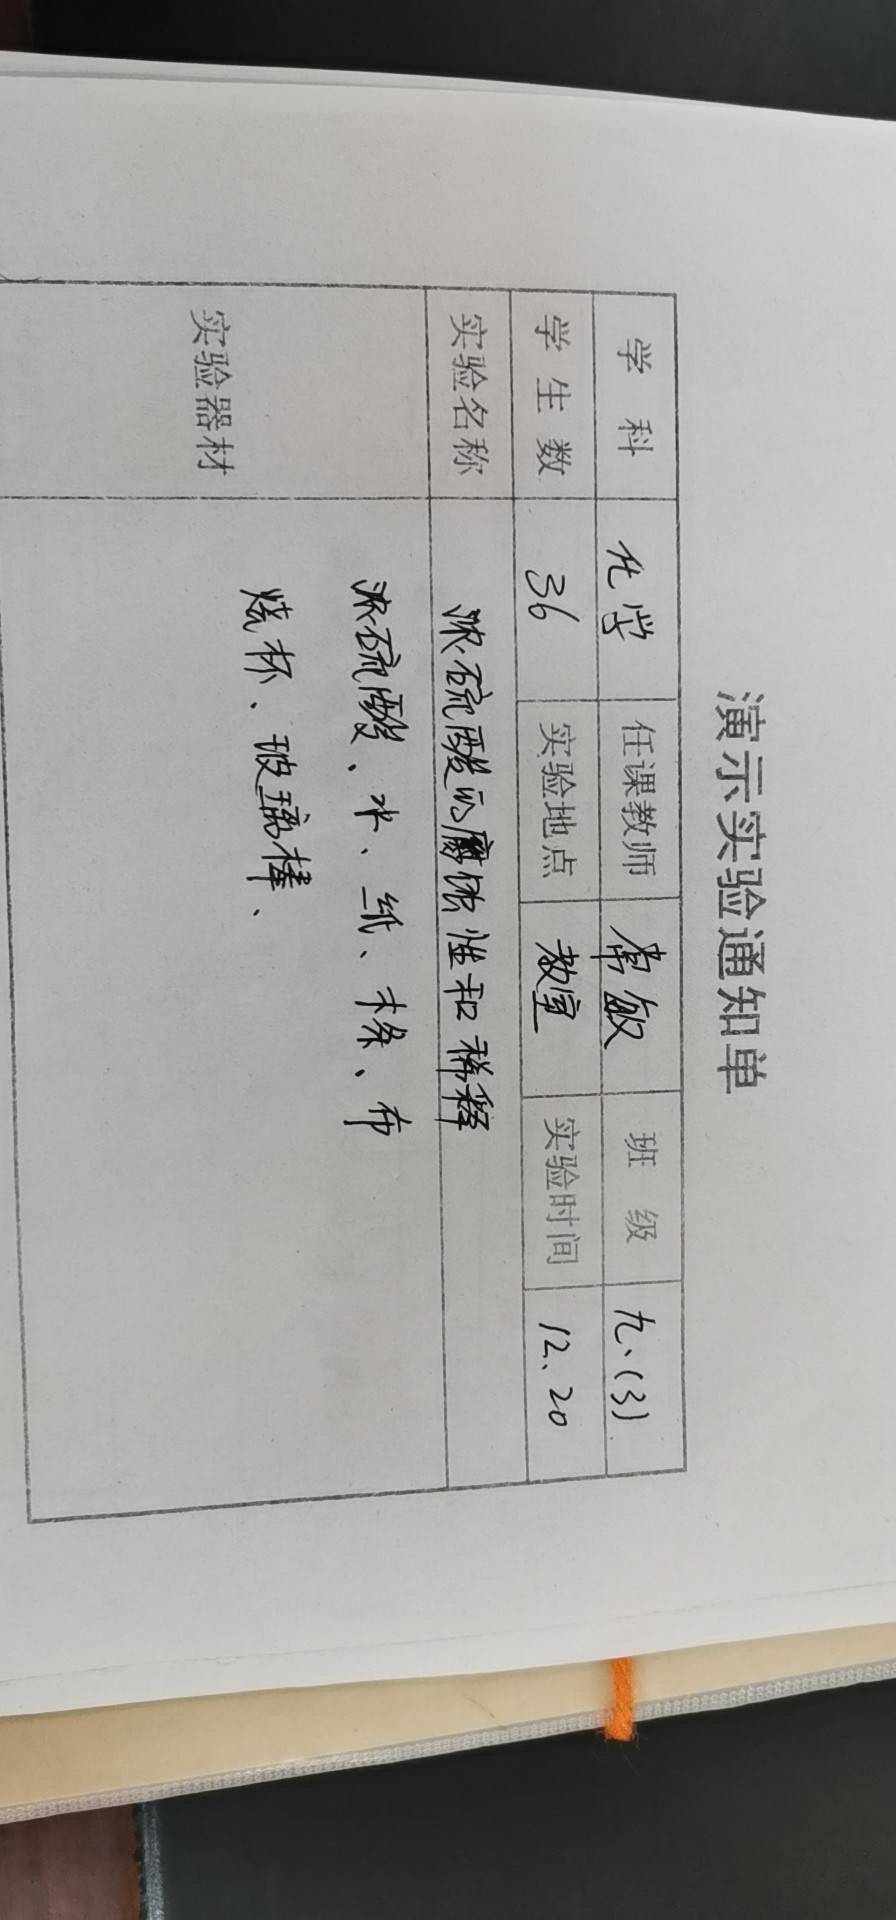 演示实验通知单
学科 化学 任课教师 常敏 班级 九、(3)
学生数 36 实验地点 教室 实验时间 12、20
实验名称 浓硫酸的腐蚀性和稀释
实验器材 浓硫酸、水、纸、木条、布
烧杯、玻璃棒、